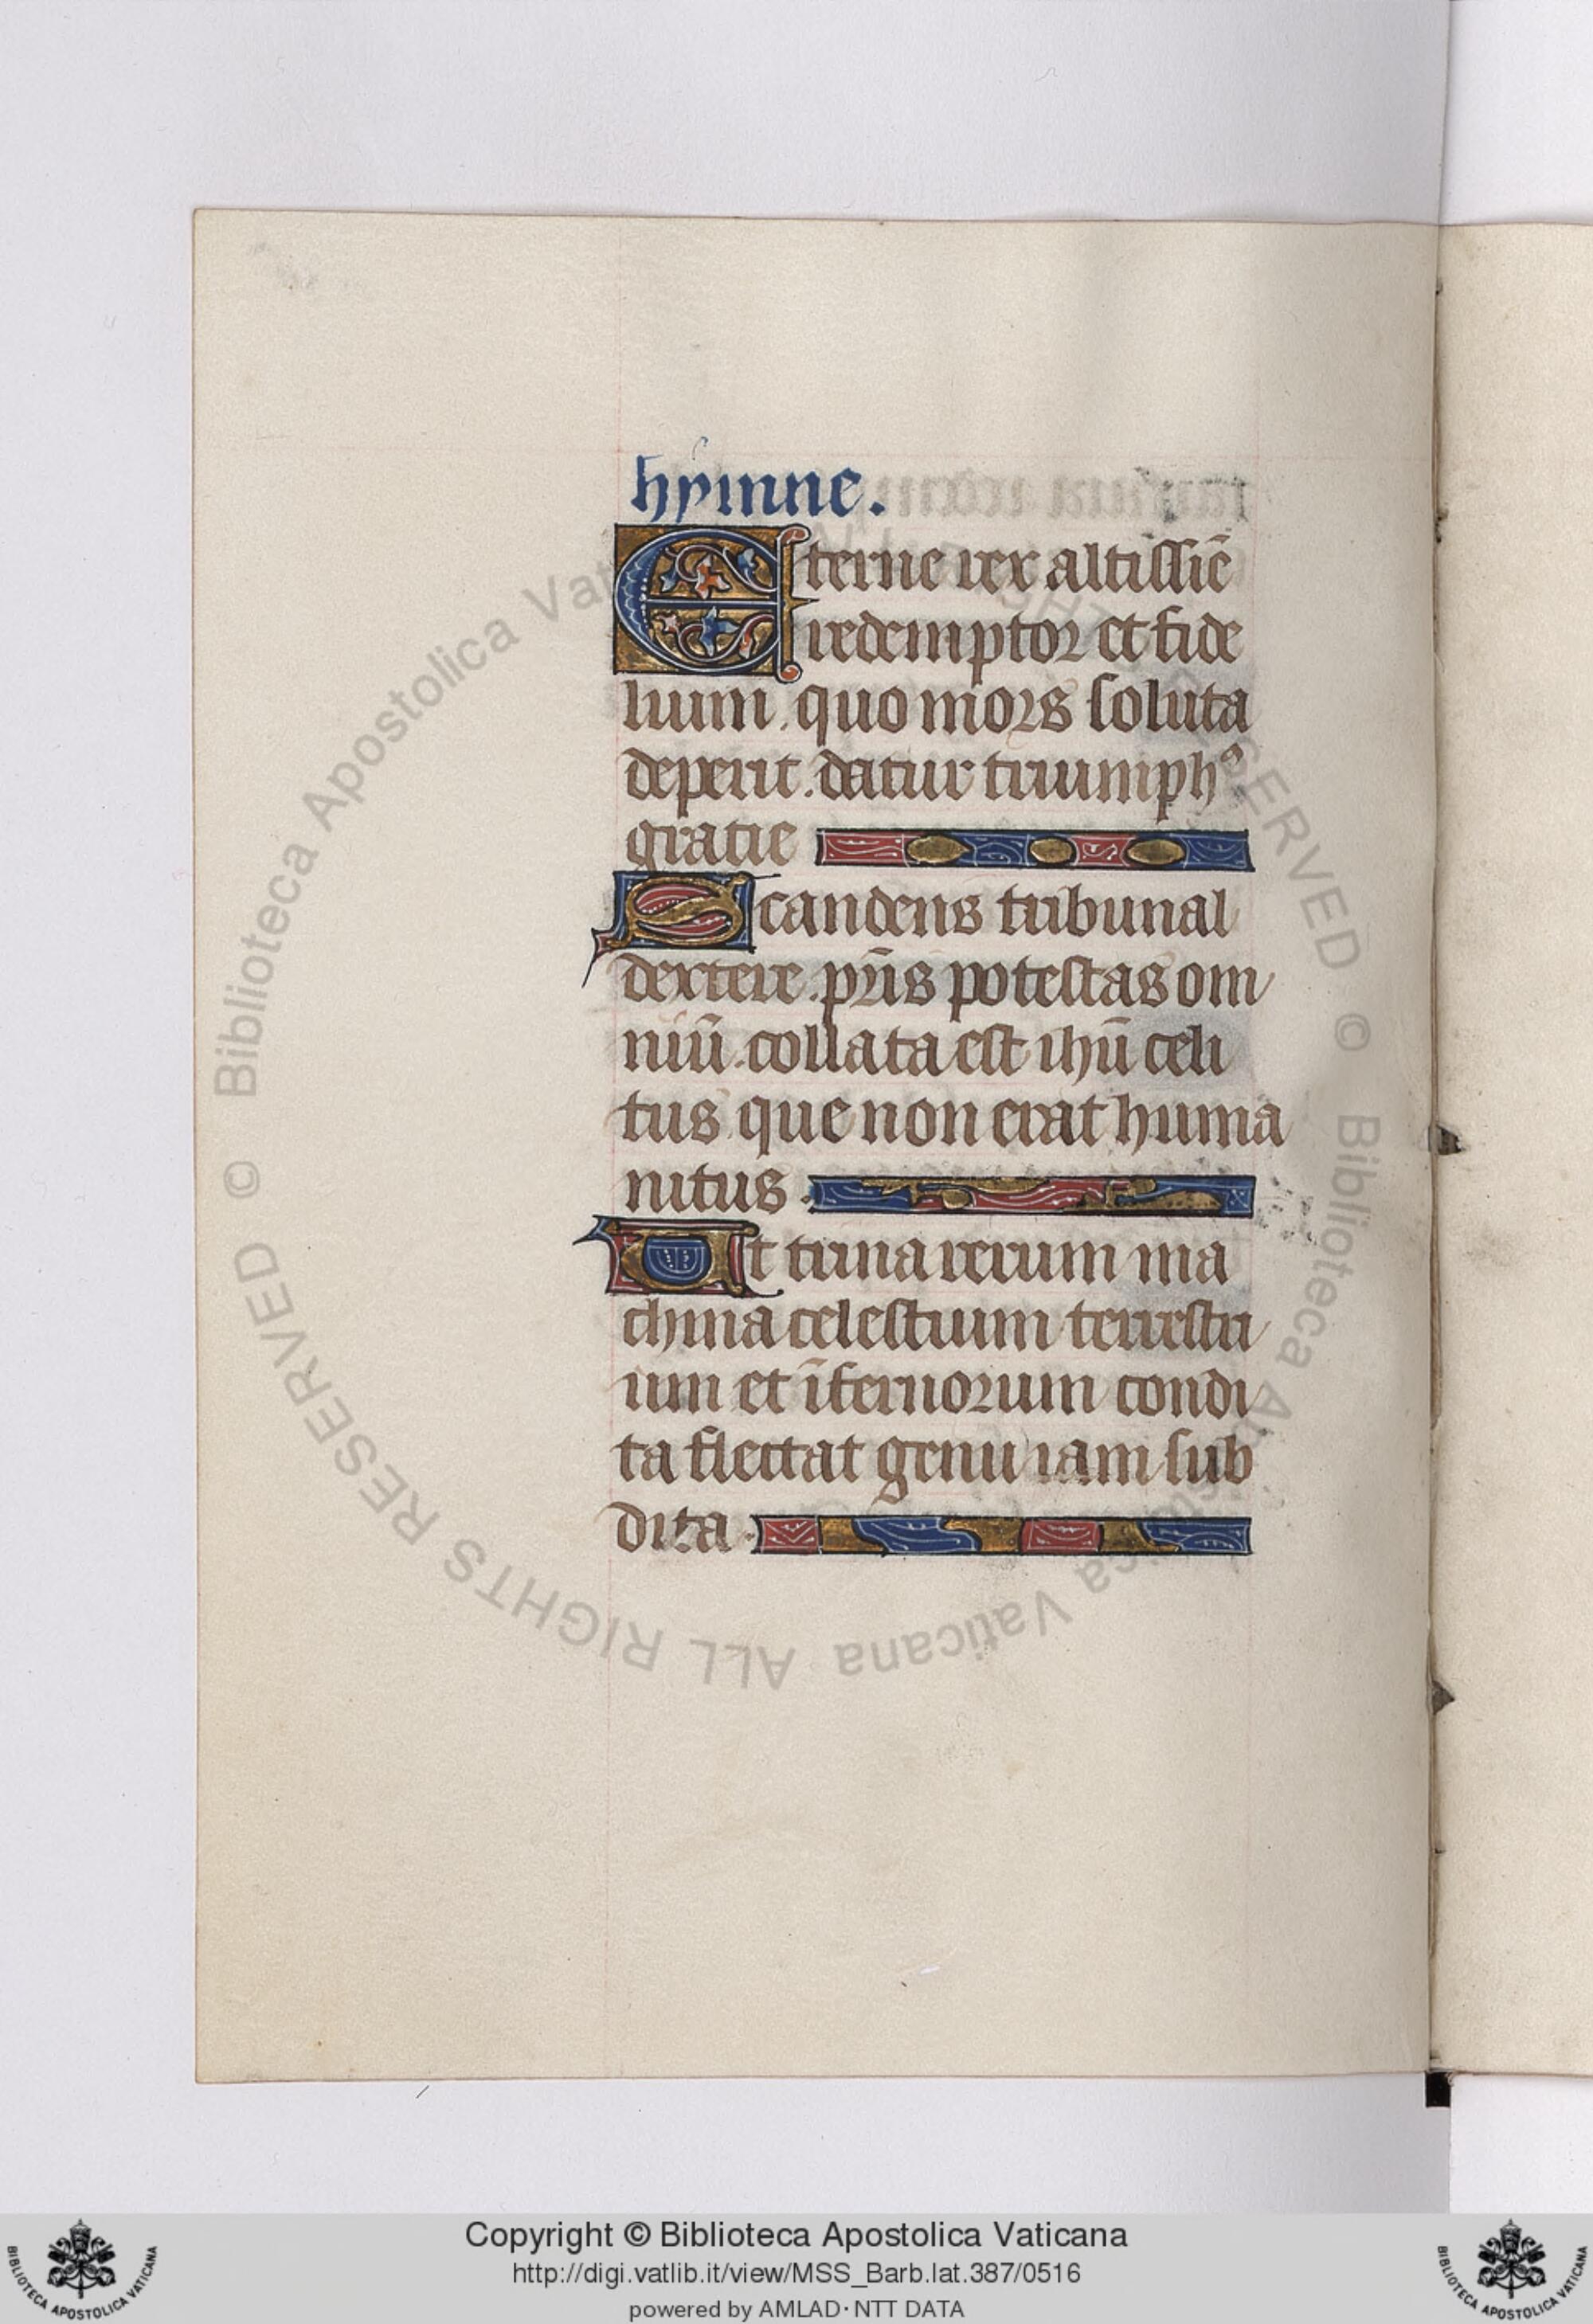 hymne.
Eterne rex altissiē
redemptor et fide
lium. quo mors soluta
deperit. datur triumphꝰ
gratie
Scandens tribunal
dextere. pr̄is potestas om
niū. collata est ihū celi
tus que non erat huma
nitus.
Ut trina rerum ma
china celestium terrestri
um et īfernorum condi
ta flectat genu iam sub
dita.
© Biblioteca Apostolica Vaticana ALL RIGHTS RESERVED © Biblioteca Apostolica Vaticana ALL RIGHTS RESERVED
Copyright © Biblioteca Apostolica Vaticana
http://digi.vatlib.it/view/MSS_Barb.lat.387/0516
powered by AMLAD·NTT DATA
BIBLIOTECA APOSTOLICA VATICANA
BIBLIOTECA APOSTOLICA VATICANA